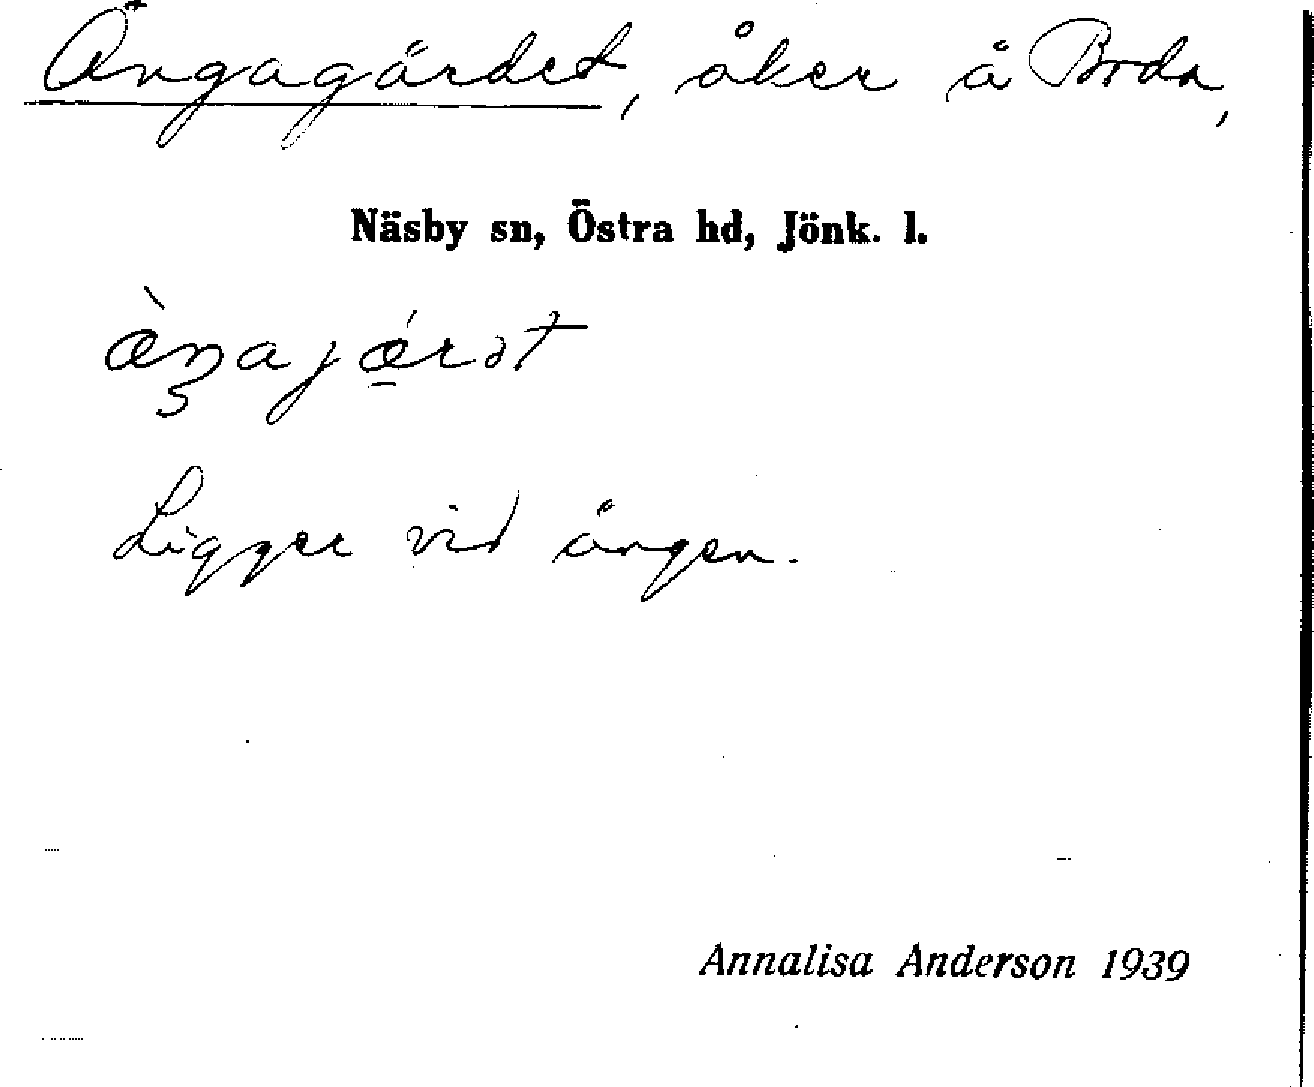 Ängagärdet, åker å Boda,
Näsby sn, Östra hd, Jönk. l.
Ligger vid ängen.
Annalisa Anderson 1939